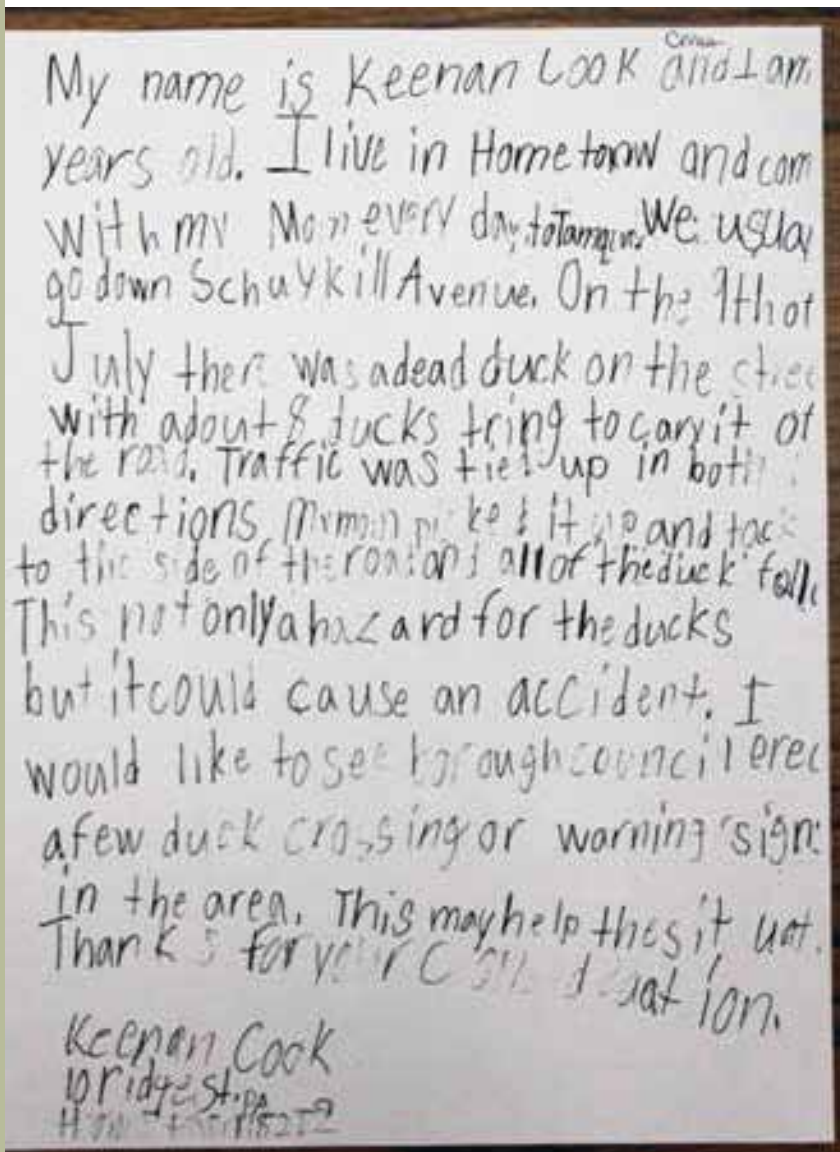 My name is Keenan Cook and I am
years old. I live in Hometonw and com
with my Mom every day to Tamqu. We usual
go down Schuykill Avenue. On the 9th of
July ther was a dead duck on the stree
with about 8 ducks tring to cary it of
the road. Traffic was tied up in both
directions. My mom picked it up and took
to the side of the road and all of the duck follo
This not only a hazard for the ducks
but it could cause an accident. I
would like to see borough council erec
a few duck crossing or warning signs
in the area. This may help the situat
Thanks for your
Keenan Cook
bridge st. pa
18252